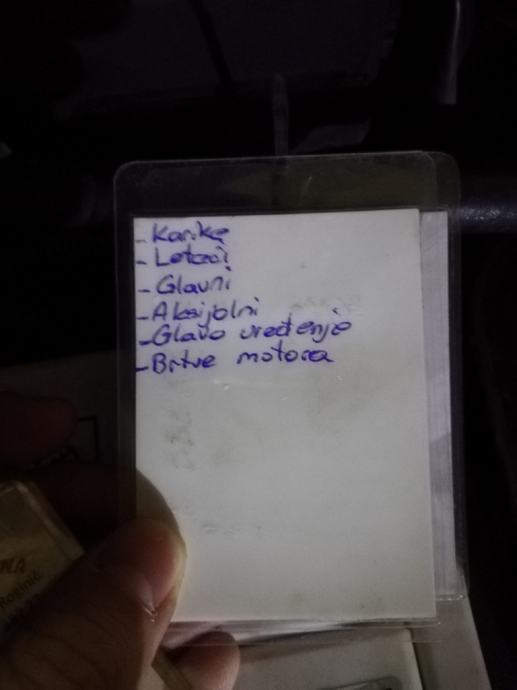 - Karike
- Leteći
- Glavni
- Aksijalni
- Glava uređenje
- Brtve motora
Roginić